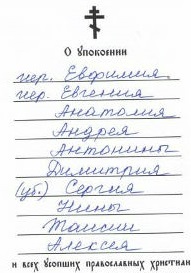 О упокоении
иер. Евфимия
иер. Евгения
Анатолия
Андрея
Антонины
Димитрия
(уб.) Сергия
Нины
Таисии
Алексея
и всех усопших православных христиан